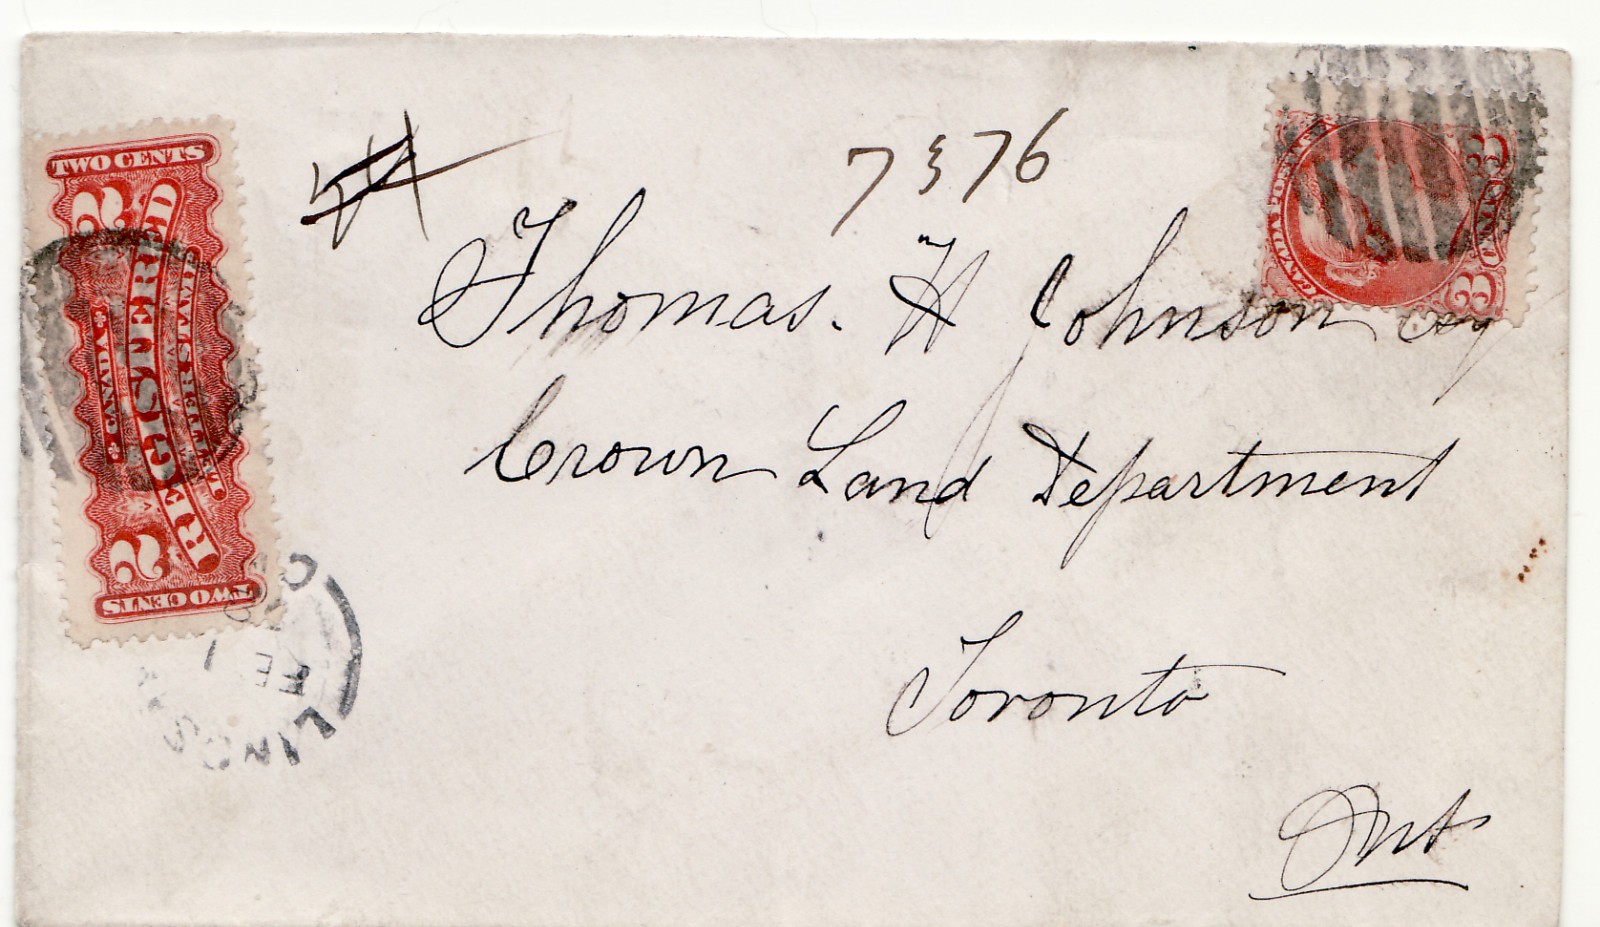 7376
Thomas. H Johnson Esq
Crown Land Department
Toronto
Ont
TWO CENTS
2
CANADA
REGISTERED
LETTER STAMP
2
TWO CENTS
CANADA POSTAGE
3 CENTS 3
FE 1